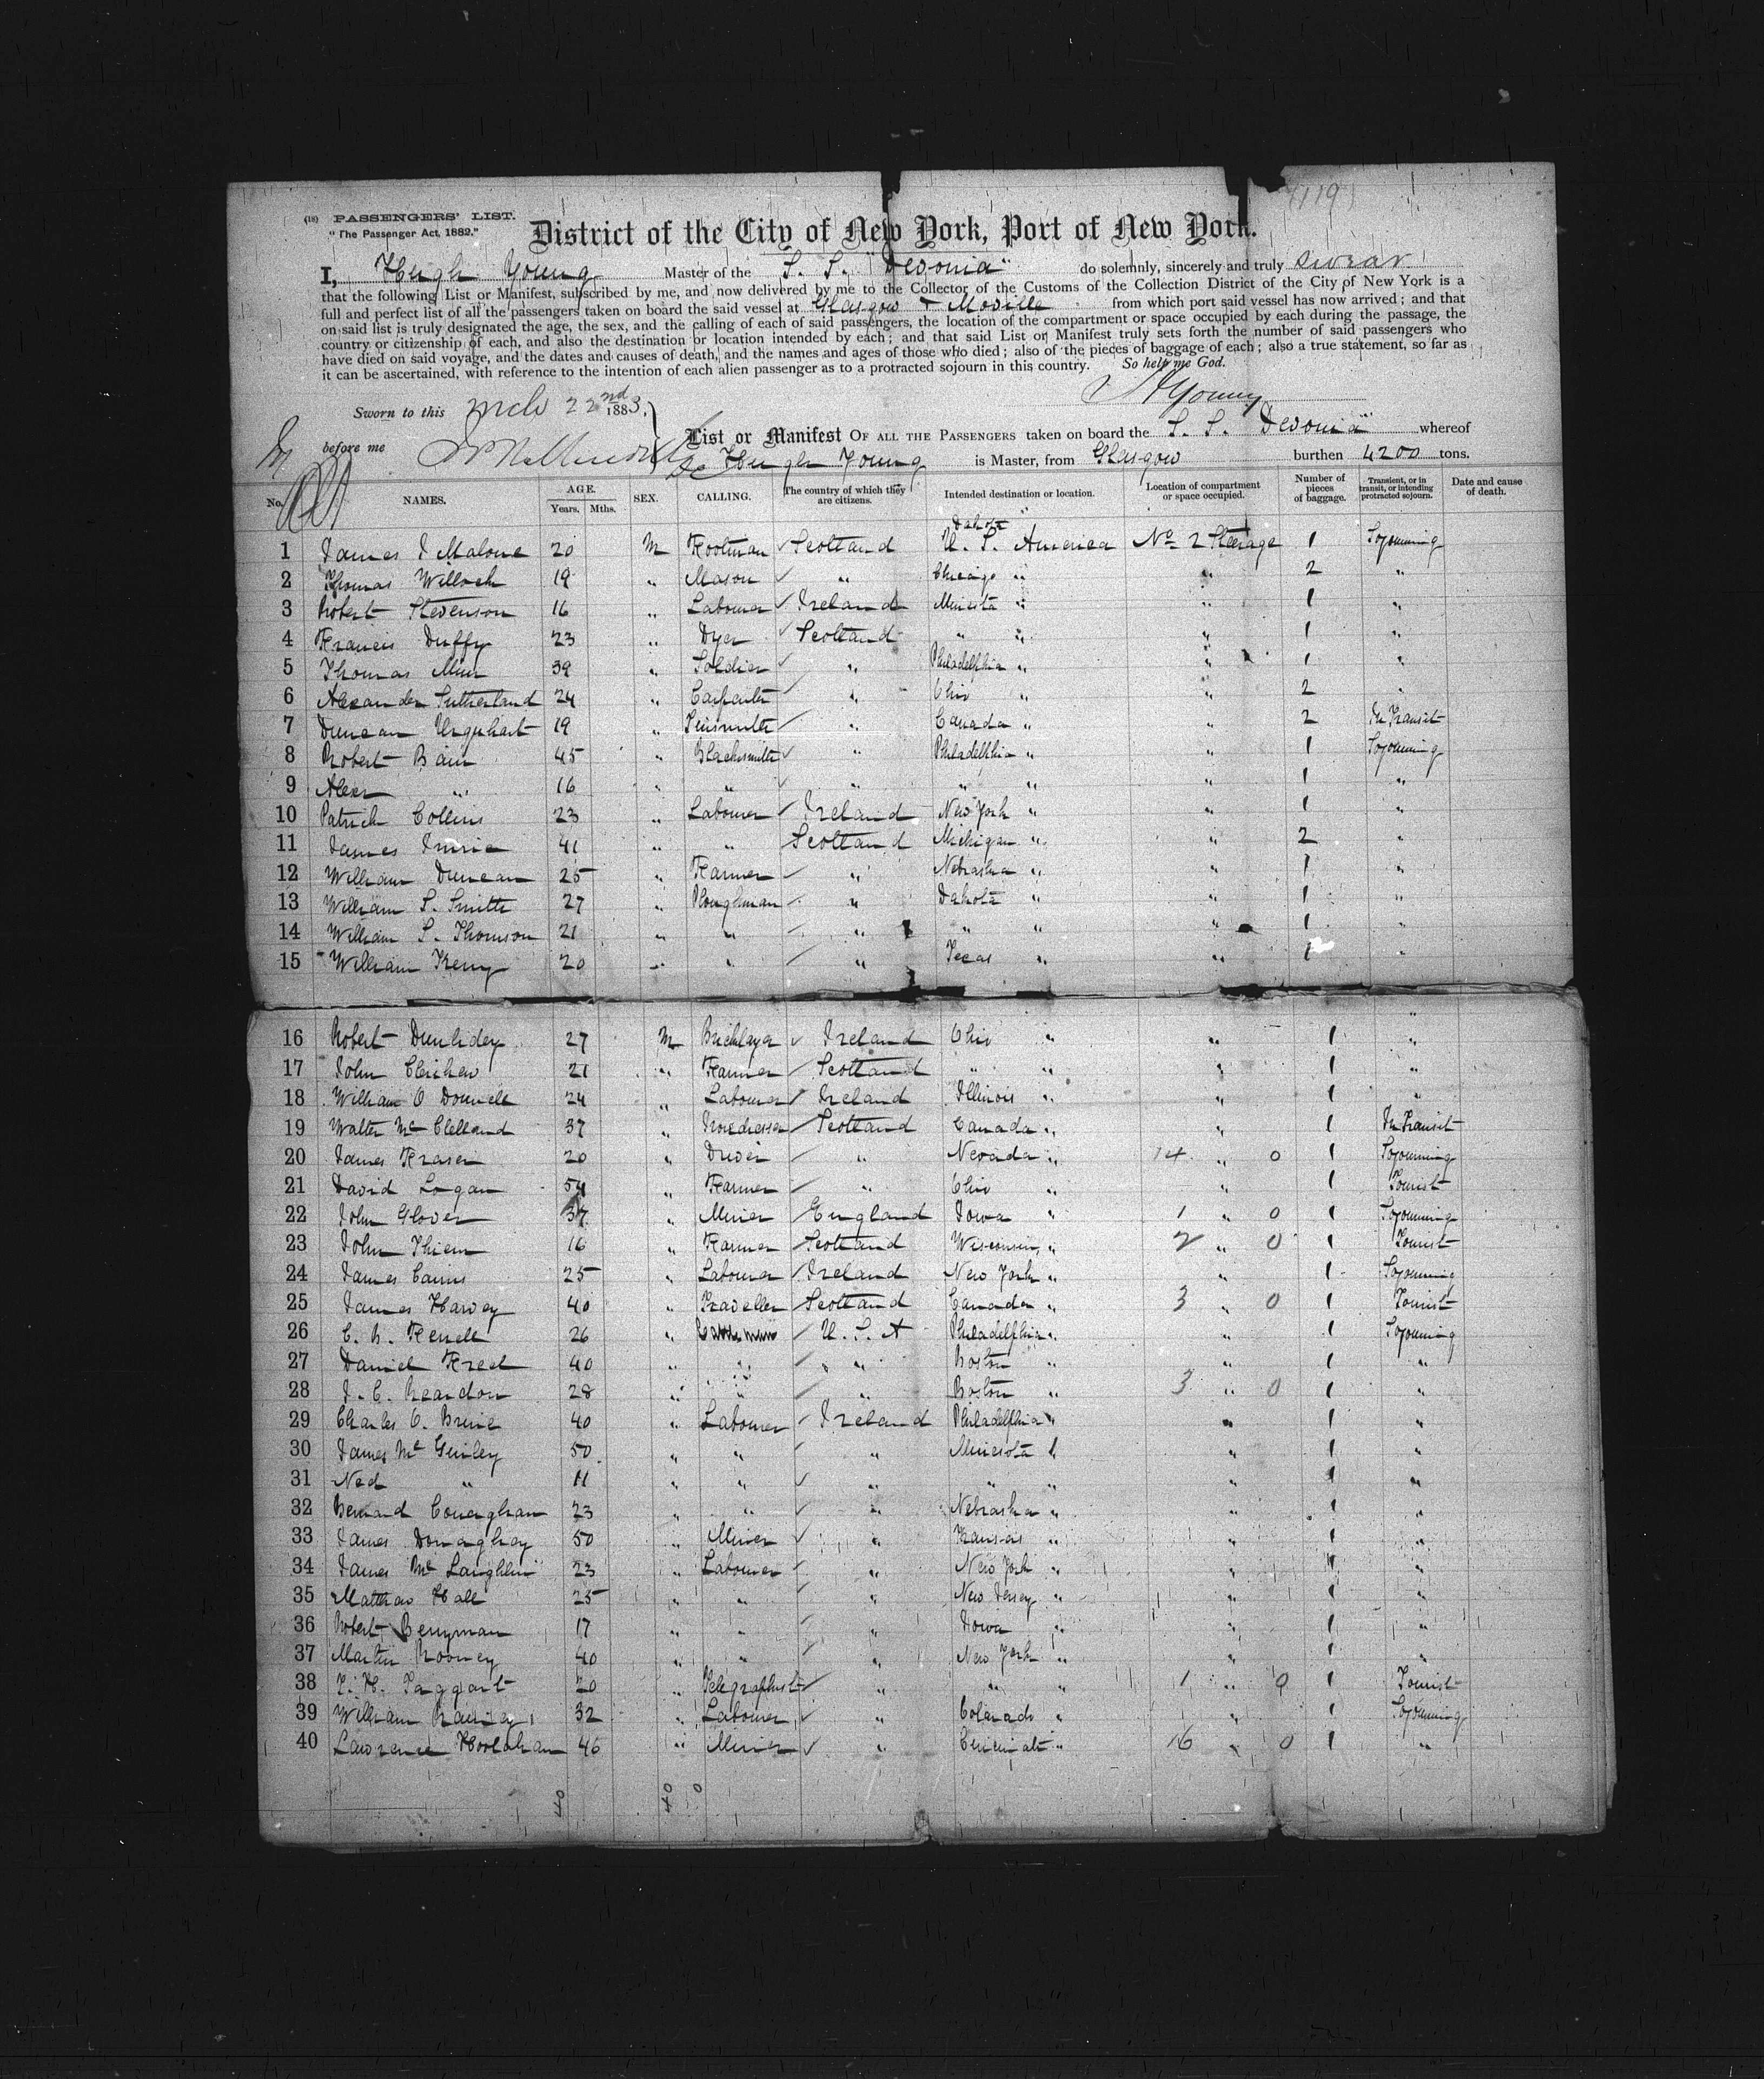 (119)
(18) PASSENGERS' LIST.
"The Passenger Act, 1882."
District of the City of New York, Port of New York.
I, Hugh Young Master of the S. S. "Devonia" do solemnly, sincerely and truly swear
that the following List or Manifest, subscribed by me, and now delivered by me to the Collector of the Customs of the Collection District of the City of New York is a
full and perfect list of all the passengers taken on board the said vessel at Glasgow & Moville from which port said vessel has now arrived; and that
on said list is truly designated the age, the sex, and the calling of each of said passengers, the location of the compartment or space occupied by each during the passage, the
country or citizenship of each, and also the destination or location intended by each; and that said List or Manifest truly sets forth the number of said passengers who
have died on said voyage, and the dates and causes of death, and the names and ages of those who died; also of the pieces of baggage of each; also a true statement, so far as
it can be ascertained, with reference to the intention of each alien passenger as to a protracted sojourn in this country. So help me God.
H Young
Sworn to this Mch 22nd 1883.
before me
List or Manifest OF ALL THE PASSENGERS taken on board the S. S. "Devonia" whereof
Hugh Young is Master, from Glasgow burthen 4200 tons.
No. NAMES. AGE. Years. Mths. SEX. CALLING. The country of which they are citizens. Intended destination or location. Location of compartment or space occupied. Number of pieces of baggage. Transient, or in transit, or intending protracted sojourn. Date and cause of death.
Dakota "
1 James J Malone 20 M Footman Scotland U. S. America No 2 Steerage 1 Sojourning
2 Thomas Willock 19 " Mason " Chicago " " 2 "
3 Robert Stevenson 16 " Labourer Ireland Minesota " " 1 "
4 Francis Duffy 23 " Dyer Scotland " " " 1 "
5 Thomas Muir 39 " Soldier " Philadelphia " " 1 "
6 Alexander Sutherland 24 " Carpenter " Ohio " " 2 "
7 Duncan Urquhart 19 " Tinsmith " Canada " " 2 In Transit
8 Robert Bain 45 " Blacksmith " Philadelphia " " 1 Sojourning
9 Alexr " 16 " " " " " " 1 "
10 Patrick Collins 23 " Labourer Ireland New York " " 1 "
11 James Imrie 41 " " Scotland Michigan " " 2 "
12 William Duncan 25 " Farmer " Nebraska " " 1 "
13 William S. Smith 27 " Ploughman " Dakota " " 1 "
14 William S. Thomson 21 " " " " " " 1 "
15 William 20 " " " Texas " " 1 "
16 Robert 27 M Bricklayer Ireland Ohio " " 1 "
17 John Clerihew 21 " Farmer Scotland " " " 1 "
18 William O Donnell 24 " Labourer Ireland Illinois " " 1 "
19 Walter McClelland 37 " Scotland Canada " " 1 In Transit
20 James Fraser 20 " Driver " Nevada " 14 " 0 1 Sojourning
21 David Logan 54 " Farmer " Ohio " 1 Tourist
22 John Glover 37 " Miner England Iowa " 1 " 0 1 Sojourning
23 John Thiem 16 " Farmer Scotland Wisconsin " 2 " 0 1 Tourist
24 James Cairns 25 " Labourer Ireland New York " " 1 Sojourning
25 James Harvey 40 " Traveller Scotland Canada " 3 " 0 1 Tourist
26 26 " U. S. A Philadelphia " " 1 Sojourning
27 Daniel 40 " " " Boston " " 1 "
28 J. C. Reardon 28 " " " Boston " 3 " 0 1 "
29 Charles O. Brine 40 " Labourer Ireland Philadelphia " " 1 "
30 James McGinley 50 " " " Minesota " " 1 "
31 Ned " 11 " " " " " " 1 "
32 Bernard Conaghan 23 " " " Nebraska " " 1 "
33 James Donaghey 50 " Miner " Kansas " " 1 "
34 James McLaughlin 23 " Labourer " New York " " 1 "
35 Matthew Hall 25 " " " New Jersey " " 1 "
36 Robert Berryman 17 " " " Iowa " " 1 "
37 Martin Rooney 40 " " " New York " " 1 "
38 T. H. Taggart 20 " Telegraphist " " " 1 " 0 1 Tourist
39 William 32 " Labourer " Colorado " " 1 Sojourning
40 Lawrence Hoolahan 46 " Miner " Cincinati " 16 " 0 1 "
40 40 0